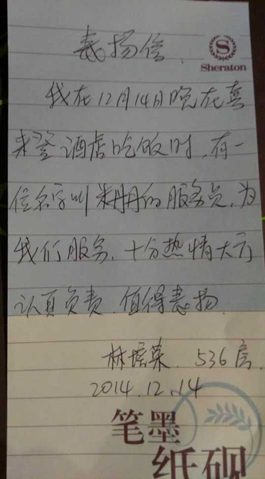 表扬信
Sheraton
我在12月14日晚在喜
来登酒店吃饭时,有一
位名字叫朱丹丹的服务员,为
我们服务,十分热情大方
认真负责,值得表扬
林培英 536房
2014.12.14
笔墨
纸砚